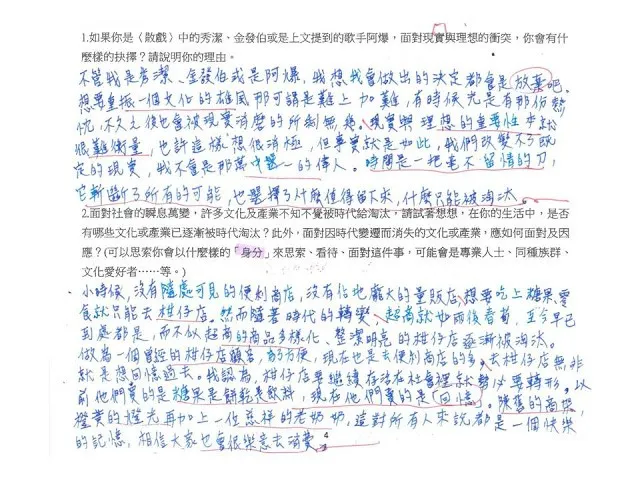 1.如果你是〈散戲〉中的秀潔、金發伯或是上文提到的歌手阿爆，面對現實與理想的衝突，你會有什
麼樣的抉擇？請說明你的理由。
不管我是秀潔、金發伯或是阿爆，我想我會做出的決定都會是放棄吧。
想要重振一個文化的雄風那可謂是難上加難，有時候光是有那份熱
忱，不久之後也會被現實消磨的所剩無幾。現實與理想的重要性本就
很難衡量，也許這樣想很消極，但事實就是如此，我們改變不了既
定的現實，我不會是那萬中選一的偉人。時間是一把毫不留情的刀，
它斬斷了所有的可能，也選擇了什麼值得留下來，什麼只能被淘汰。
2.面對社會的瞬息萬變，許多文化及產業不知不覺被時代給淘汰。請試著想想，在你的生活中，是否
有哪些文化或產業已逐漸被時代淘汰？此外，面對因時代變遷而消失的文化或產業，應如何面對及因
應？(可以思索你會以什麼樣的「身分」來思索、看待、面對這件事，可能會是專業人士、同種族群、
文化愛好者⋯⋯等。)
小時候，沒有隨處可見的便利商店，沒有佔地龐大的量販店，想要吃上糖果零
食就只能去柑仔店。然而隨著時代的轉變，超商就如雨後春筍，至今早已
到處都是，而不似超商的商品多樣化、整潔明亮的柑仔店逐漸被淘汰。
做為一個曾經的柑仔店顧客，方便，現在也是去便利商店的多，去柑仔店無非
就是想回憶過去。我認為，柑仔店要繼續存活在社會裡就勢必要轉形。以
前他們賣的是糖果是餅乾是飲料，現在他們賣的是回憶。陳舊的商標
橙黃的燈光再加上一位慈祥的老奶奶，這對所有人來說都是一個快樂
的記憶，相信大家也會很樂意去消費。
4